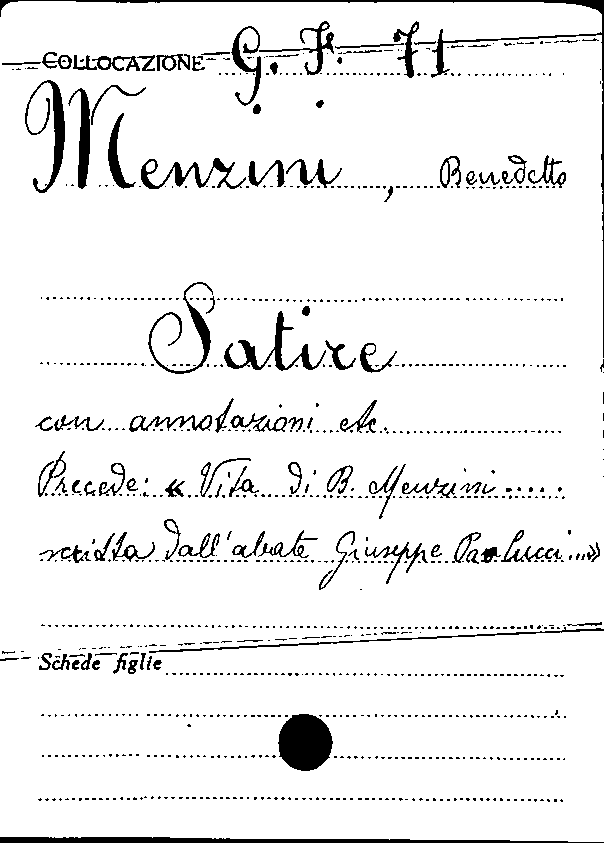 COLLOCAZIONE G. F. 71
Menzini, Benedetto
Satire
con annotazioni etc.
Precede: « Vita di B. Menzini.....
scritta dall'abate Giuseppe Paolucci...»
Schede figlie